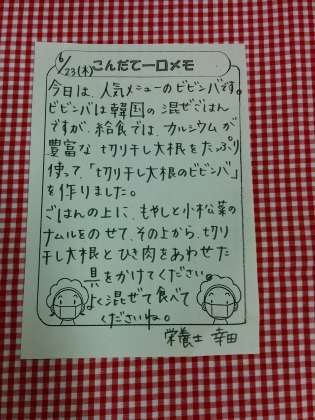 6/23(木)こんだて一口メモ
今日は、人気メニューのビビンバです。
ビビンバは韓国の混ぜごはん
ですが、給食では、カルシウムが
豊富な切り干し大根をたっぷり
使って、「切り干し大根のビビンバ」
を作りました。
ごはんの上に、もやしと小松菜の
ナムルをのせて、その上から、切り
干し大根とひき肉をあわせた
具をかけてください。
よく混ぜて食べて
くださいね。
栄養士 幸田